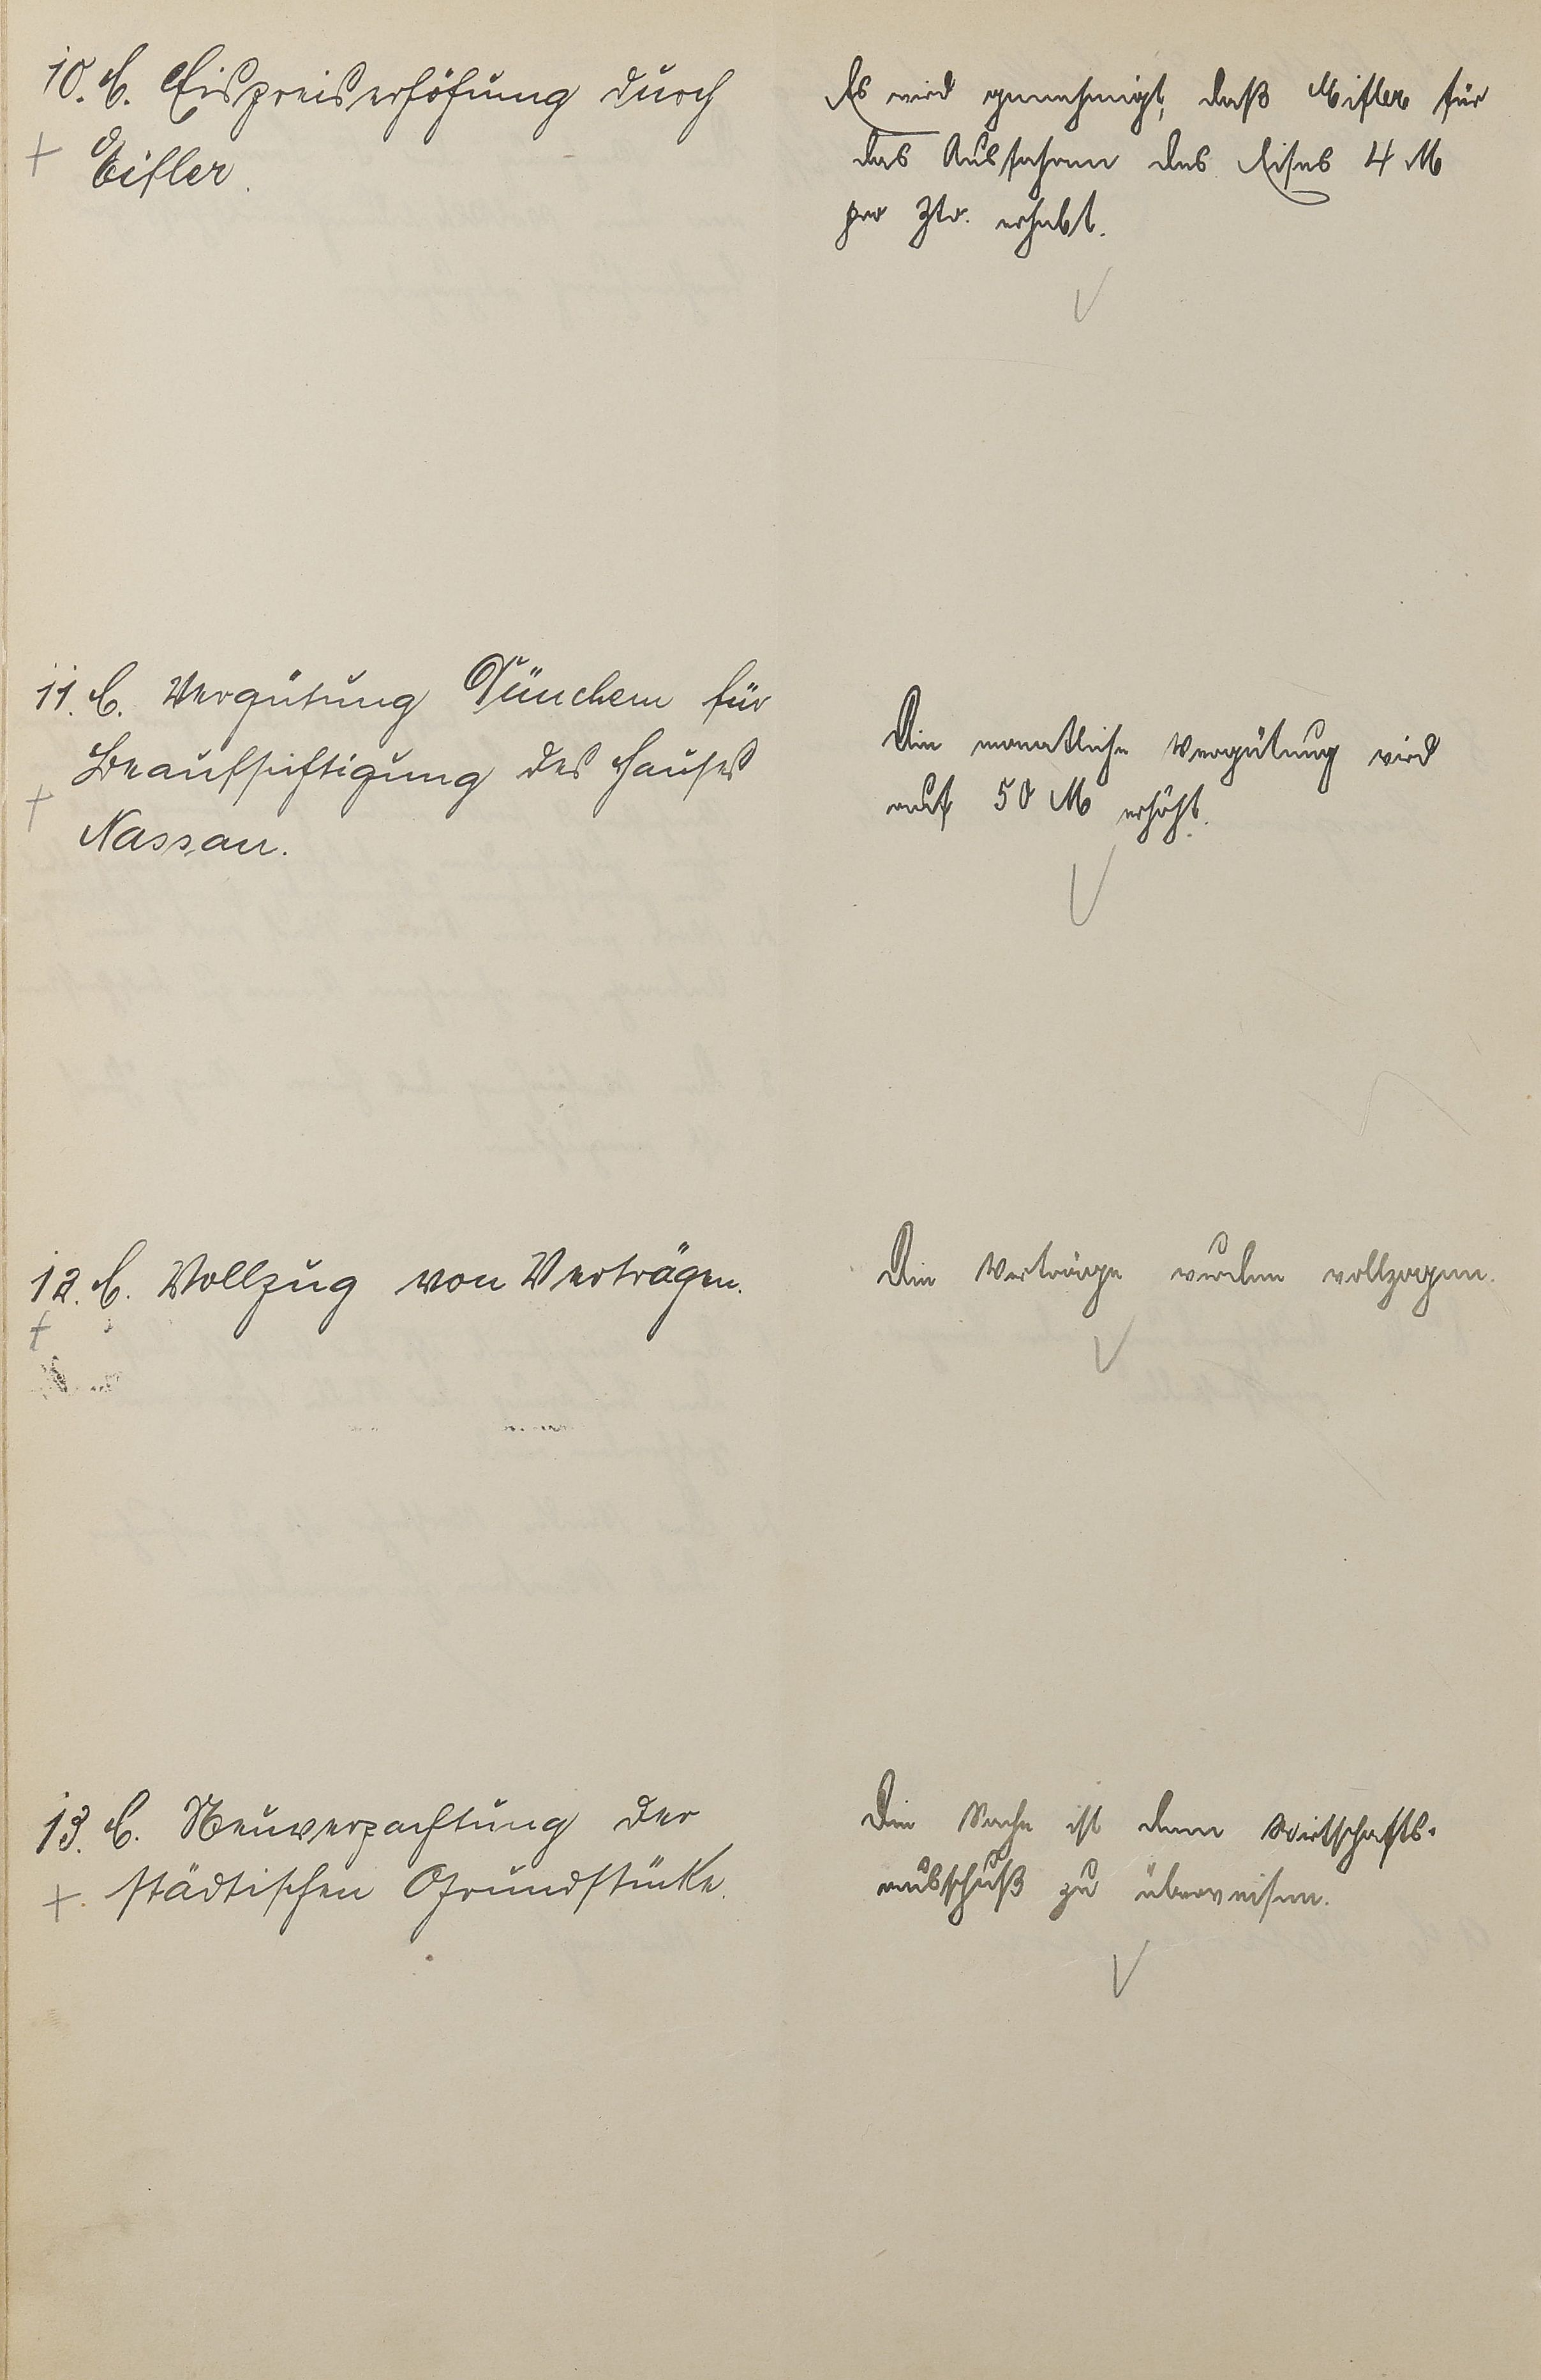 10. C. Eispreiserhöhung durch
Eifler.
Es wird genehmigt, daß Eifler für
das Ausfahren des Eises 4 M
pro Ztr. erhebt.
11. C. Vergütung für
Beaufsichtigung des Hauses
Nassau.
Die monatliche Vergütung wird
auf 50 M erhöht.
12. C. Vollzug von Verträgen.
Die Verträge wurden vollzogen.
13. C. Neuverpachtung der
städtischen Grundstücke.
Die Sache ist dem Wirtschafts-
ausschuß zu überweisen.